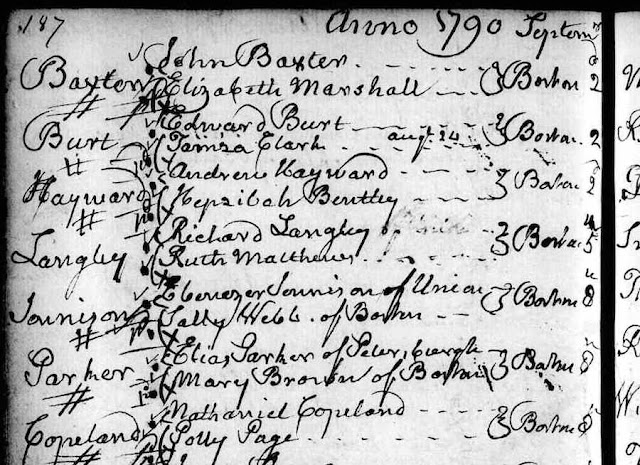 187 Anno 1790 Septemr
John Baxter
Baxter Elizabeth Marshall Boston 2
Edward Burt
Burt Tamza Clark augt 24 Boston 2
Andrew Hayward
Hayward Hepzibah Bentley Boston 2
Richard Langley
Langley Ruth Matthews Boston 5
Ebenezer Jonnison of Union
Jonnison Sally Webb of Boston Boston 8
Elias Parker of Petersburgh
Parker Mary Brown of Boston Boston 8
Nathaniel Copeland
Copeland Polly Page Boston 8